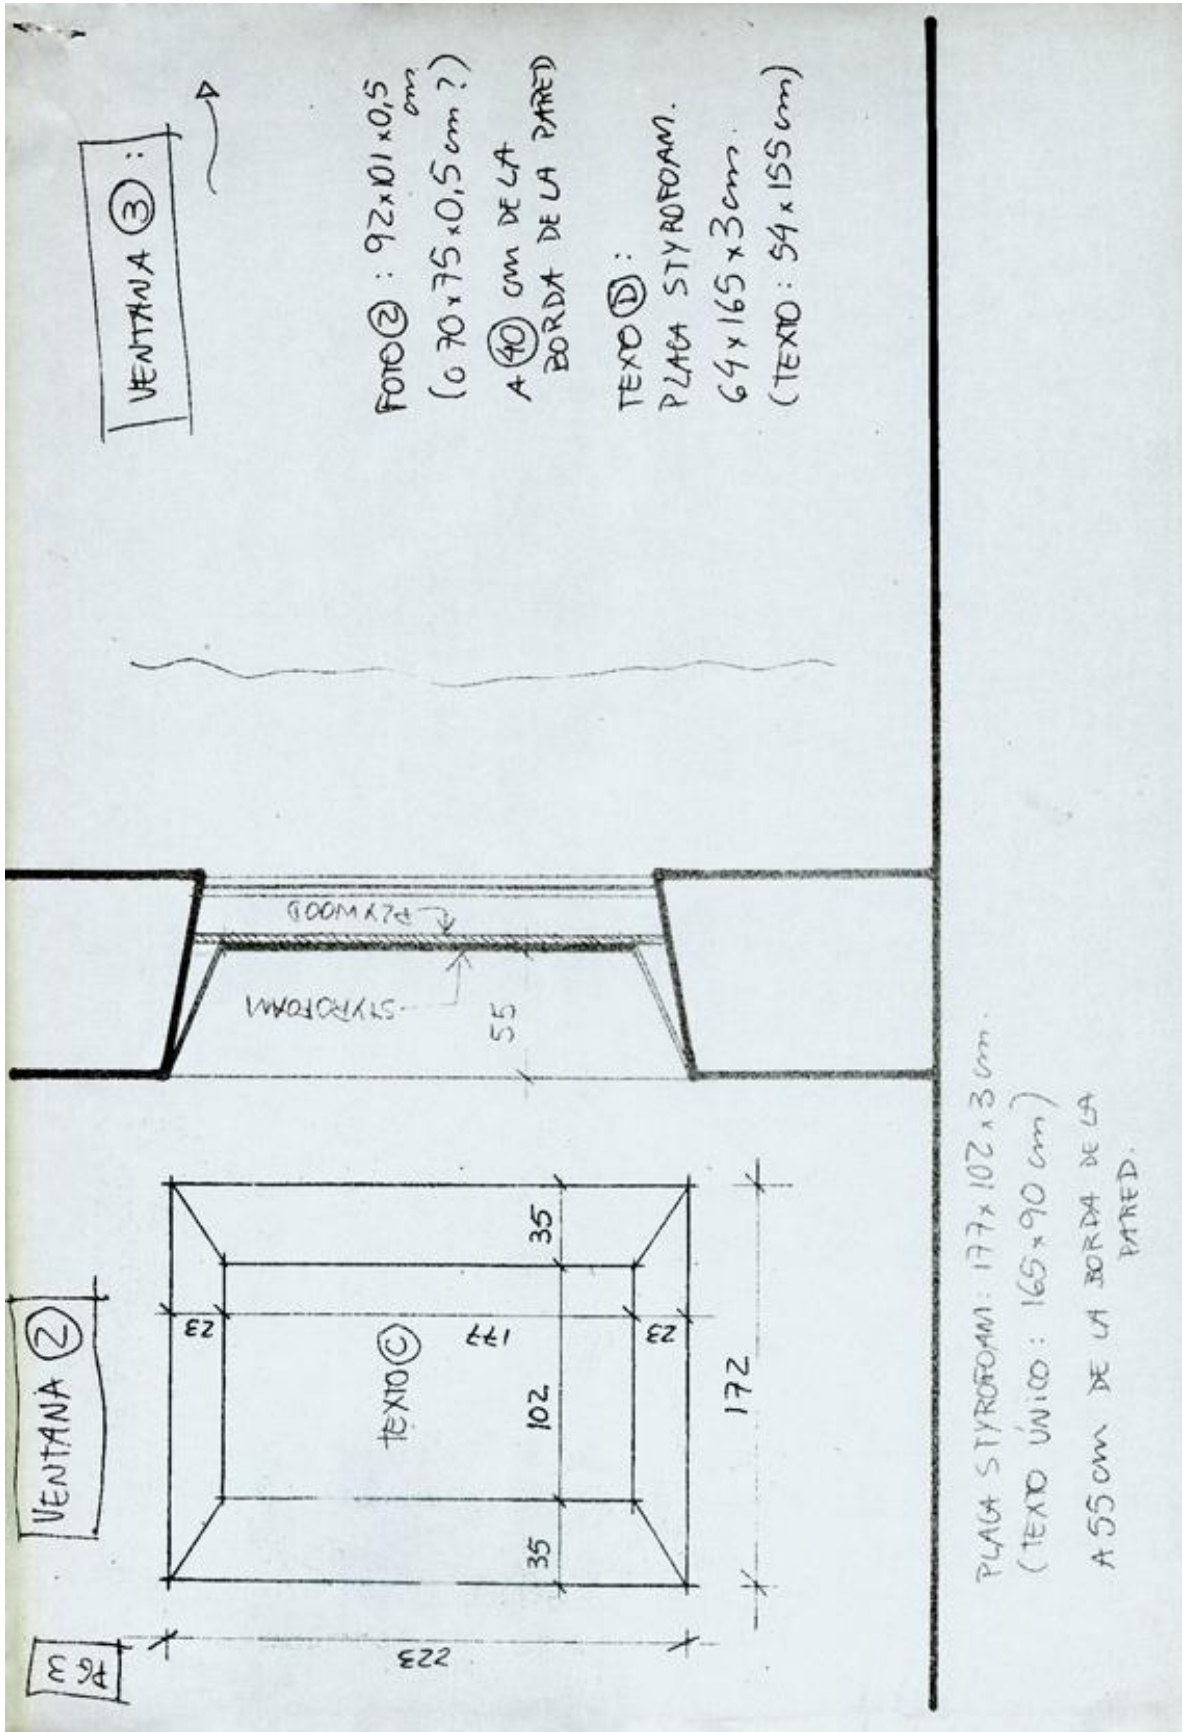 PÁG
3
VENTANA ②
23
177
23
TEXTO Ⓒ
35
102
35
172
223
PLYWOOD
STYROFOAM
55
PLAGA STYROFOAM: 177 x 102 x 3 cm.
(TEXTO ÚNICO: 165 x 90 cm)
A 55 cm DE LA BORDA DE LA
PARED.
VENTANA ③:
FOTO ②: 92 x 101 x 0,5
cm
(o 70 x 75 x 0,5 cm?)
A ④⓪ cm DE LA
BORDA DE LA PARED
TEXTO Ⓓ:
PLAGA STYROFOAM.
64 x 165 x 3 cms.
(TEXTO: 54 x 155 cm)